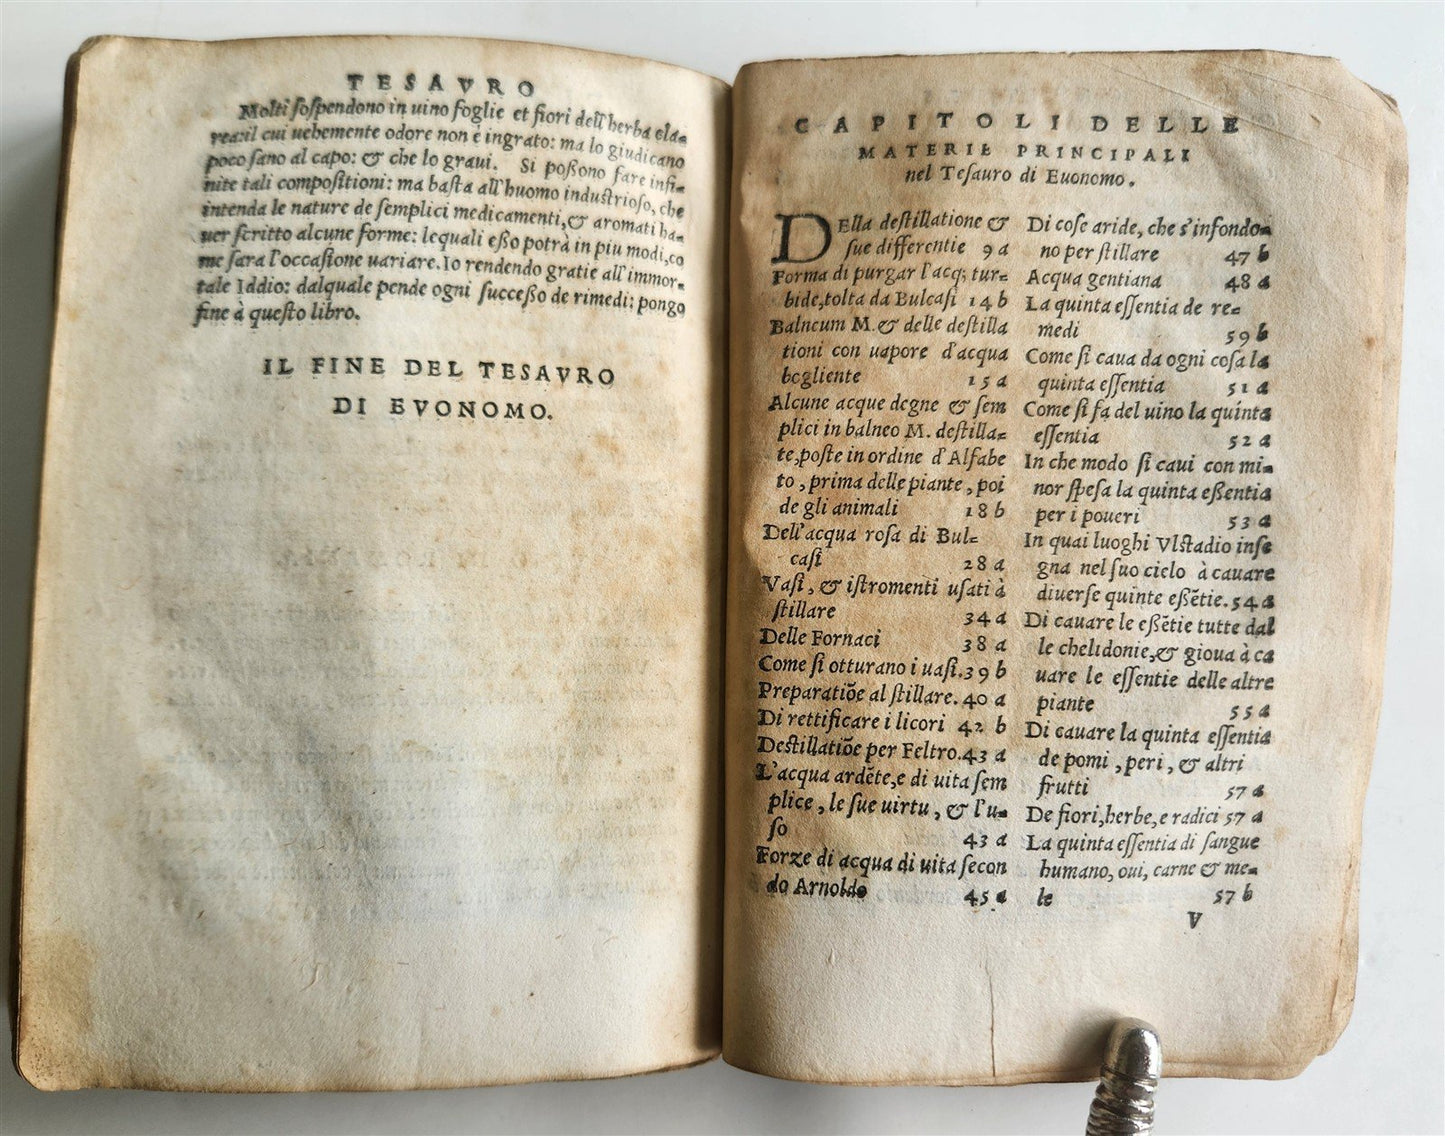 TESAVRO
Molti sospendono in uino foglie et fiori dell'herba sla=
rea: il cui uehemente odore non è ingrato: ma lo giudicano
poco sano al capo: & che lo graui. Si possono fare infi=
nite tali compositioni: ma basta all'huomo industrioso, che
intenda le nature de semplici medicamenti, & aromati ha=
uer scritto alcune forme: lequali esso potrà in piu modi, co
me sara l'occasione uariare. Io rendendo gratie all'immor=
tale Iddio: dalquale pende ogni successo de rimedi: pongo
fine à questo libro.
IL FINE DEL TESAVRO
DI EVONOMO.
CAPITOLI DELLE
MATERIE PRINCIPALI
nel Tesauro di Euonomo.
DElla destillatione &
sue differentie 9 a
Forma di purgar l'acq; tur=
bide, tolta da Bulcasi 14 b
Balneum M. & delle destilla
tioni con uapore d'acqua
bogliente 15 a
Alcune acque degne & sem
plici in balneo M. destilla=
te, poste in ordine d'Alfabe
to, prima delle piante, poi
de gli animali 18 b
Dell'acqua rosa di Bul=
casi 28 a
Vasi, & istromenti usati à
stillare 34 a
Delle Fornaci 38 a
Come si otturano i uasi. 39 b
Preparatiõe al stillare. 40 a
Di rettificare i licori 42 b
Destillatiõe per Feltro. 43 a
L'acqua ardẽte, e di uita sem
plice, le sue uirtu, & l'u=
so 43 a
Forze di acqua di uita secon
do Arnoldo 45 a
Di cose aride, che s'infondo=
no per stillare 47 b
Acqua gentiana 48 a
La quinta essentia de re=
medi 59 b
Come si caua da ogni cosa la
quinta essentia 51 a
Come si fa del uino la quinta
essentia 52 a
In che modo si caui con mi=
nor spesa la quinta essentia
per i poueri 53 a
In quai luoghi Vlstadio inse
gna nel suo cielo à cauare
diuerse quinte essẽtie. 54 a
Di cauare le essẽtie tutte dal
le chelidonie, & gioua à ca
uare le essentie delle altre
piante 55 a
Di cauare la quinta essentia
de pomi, peri, & altri
frutti 57 a
De fiori, herbe, e radici 57 a
La quinta essentia di sangue
humano, oui, carne & me=
le 57 b
V